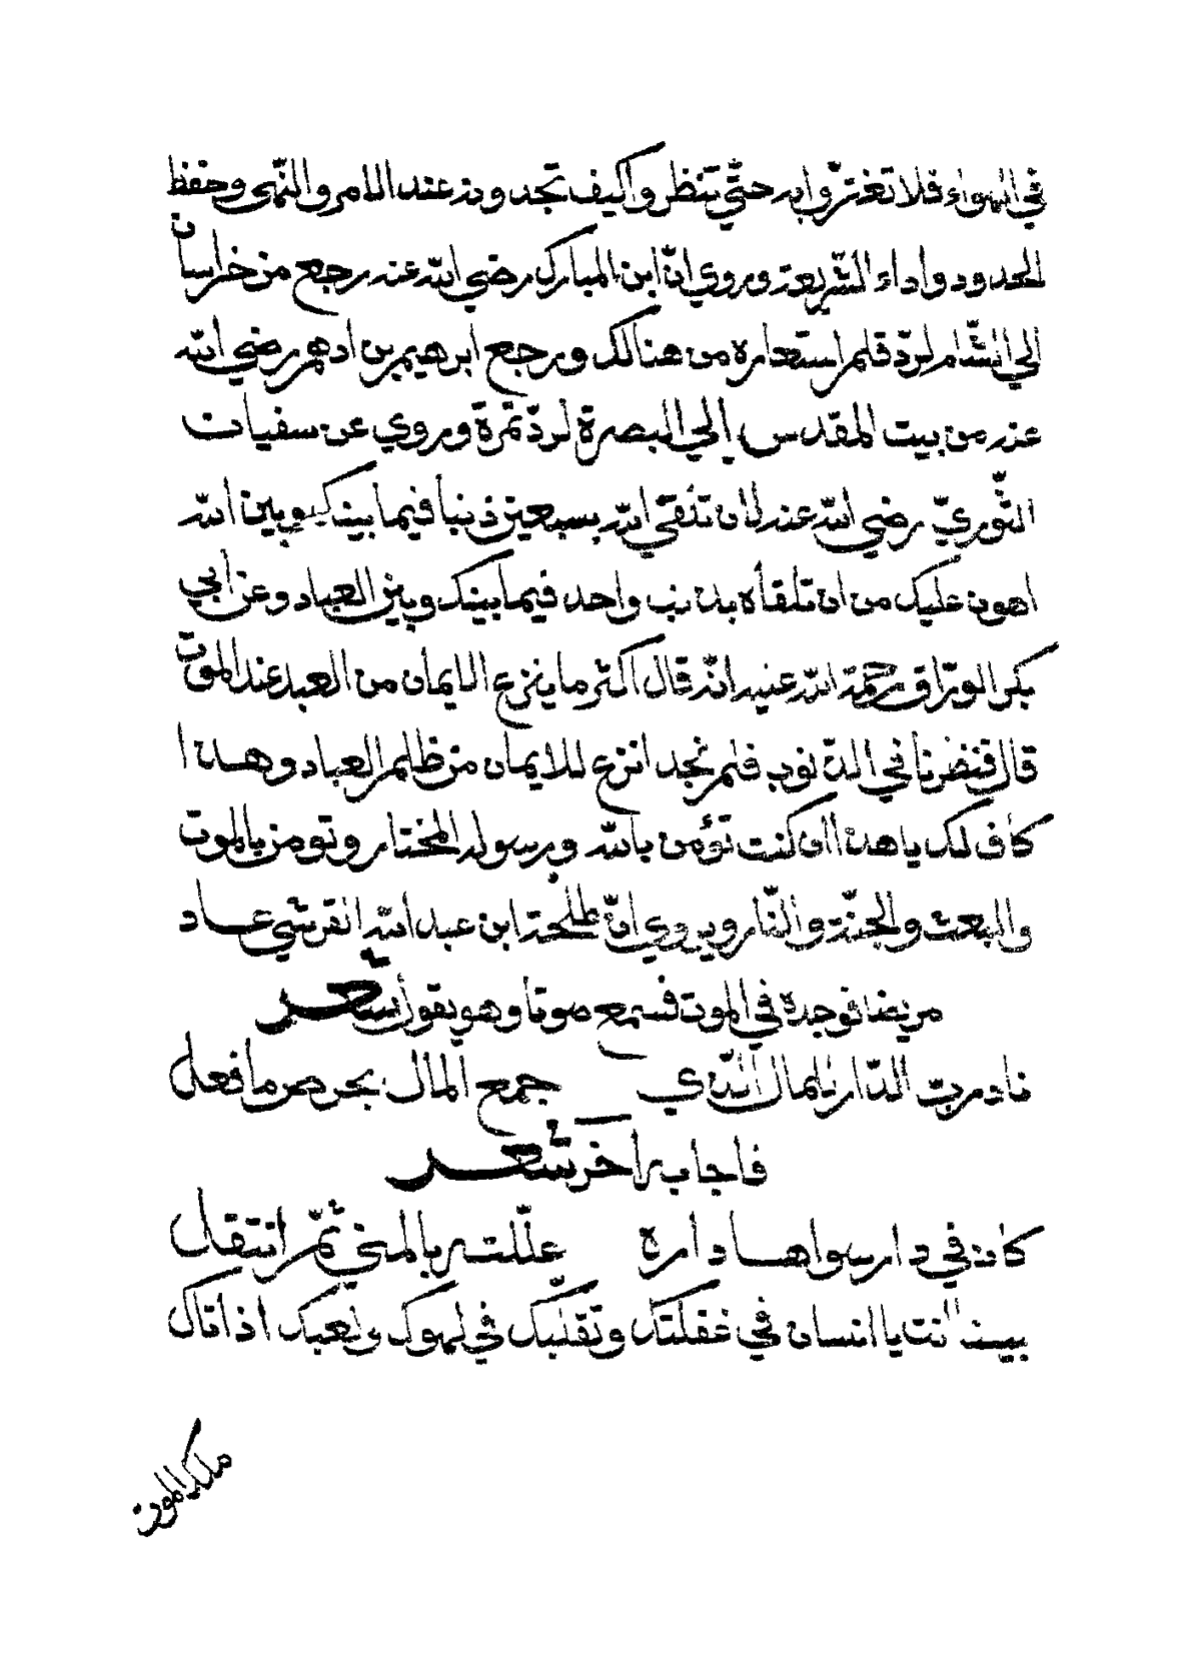 في الهواء فلا تغترّوا به حتّي تنظروا كيف تجدونه عند الامر والنّهي وحفظ
الحدود واداء الشّريعة وروي انّ ابن المبارك رضي الله عنه رجع من خراسان
الي الشّام لردّ قلم استعاره من هنالك ورجع ابرهيم بن ادهم رضي الله
عنه من بيت المقدس إلي البصرة لردّ تمرة وروي عن سفيان
الثّوريّ رضي الله عنه لان تلقي الله بسبعين ذنبا فيما بينك وبين الله
اهون عليك من ان تلقاه بذنب واحد فيما بينك وبين العباد وعن ابي
بكر الورّاق رحمة الله عليه انّه قال اكثر ما ينزع الايمان من العبد عند الموت
قال فنظرنا في الذّنوب فلم نجد انزع للايمان من ظلم العباد وهذا
كاف لك يا هذا ان كنت تؤمن بالله ورسوله المختار وتومن بالموت
والبعث والجنّة والنّار ويروي انّ طلحة ابن عبد الله القرشي عاد
مريضا فوجده في الموت فسمع صوتا وهو يقول شعر
نا دربّ الدّار ذا المال الّذي جمع المال بحرص ما فعل
فاجابه آخر شعر
كان في دار سواها داره علّلته بالمني ثمّ انتقل
بينا انت يا انسان في غفلتك وتقلّبك في لهوك ولعبك اذ اتاك
ملك الموت